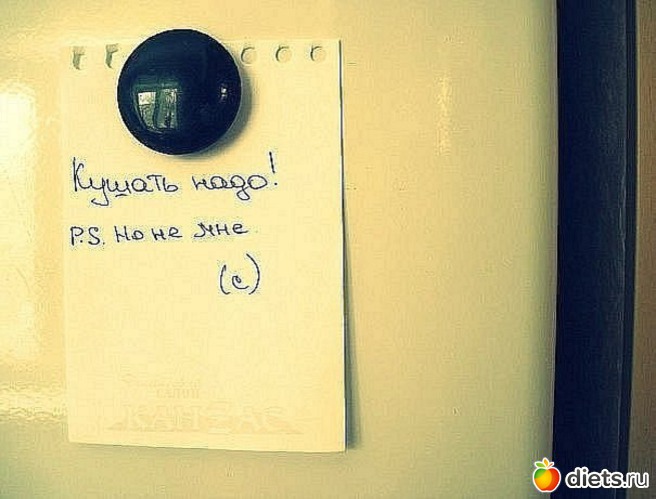 Кушать надо!
P.S. Но не мне.
(с)
КАНЗАС
diets.ru